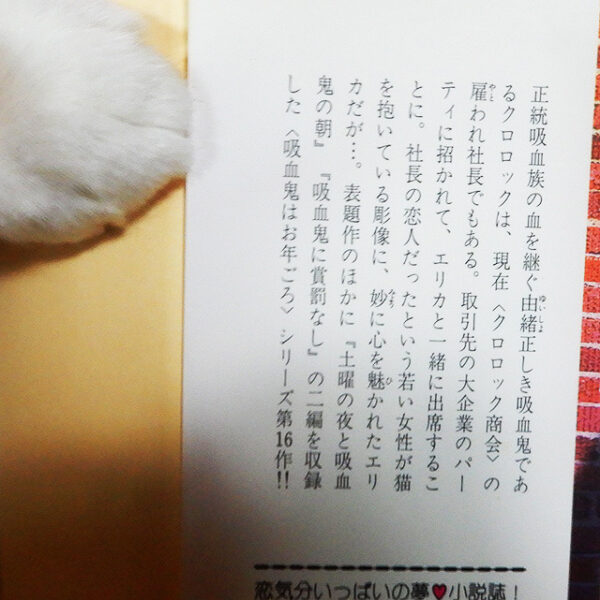 正統吸血族の血を継ぐ由緒正しき吸血鬼であ
るクロロックは、現在〈クロロック商会〉の
雇われ社長でもある。取引先の大企業のパー
ティに招かれて、エリカと一緒に出席するこ
とに。社長の恋人だったという若い女性が猫
を抱いている彫像に、妙に心を魅かれたエリ
カだが…。表題作のほかに『土曜の夜と吸血
鬼の朝』『吸血鬼に賞罰なし』の二編を収録
した〈吸血鬼はお年ごろ〉シリーズ第16作!!
恋気分いっぱいの夢♥小説誌!